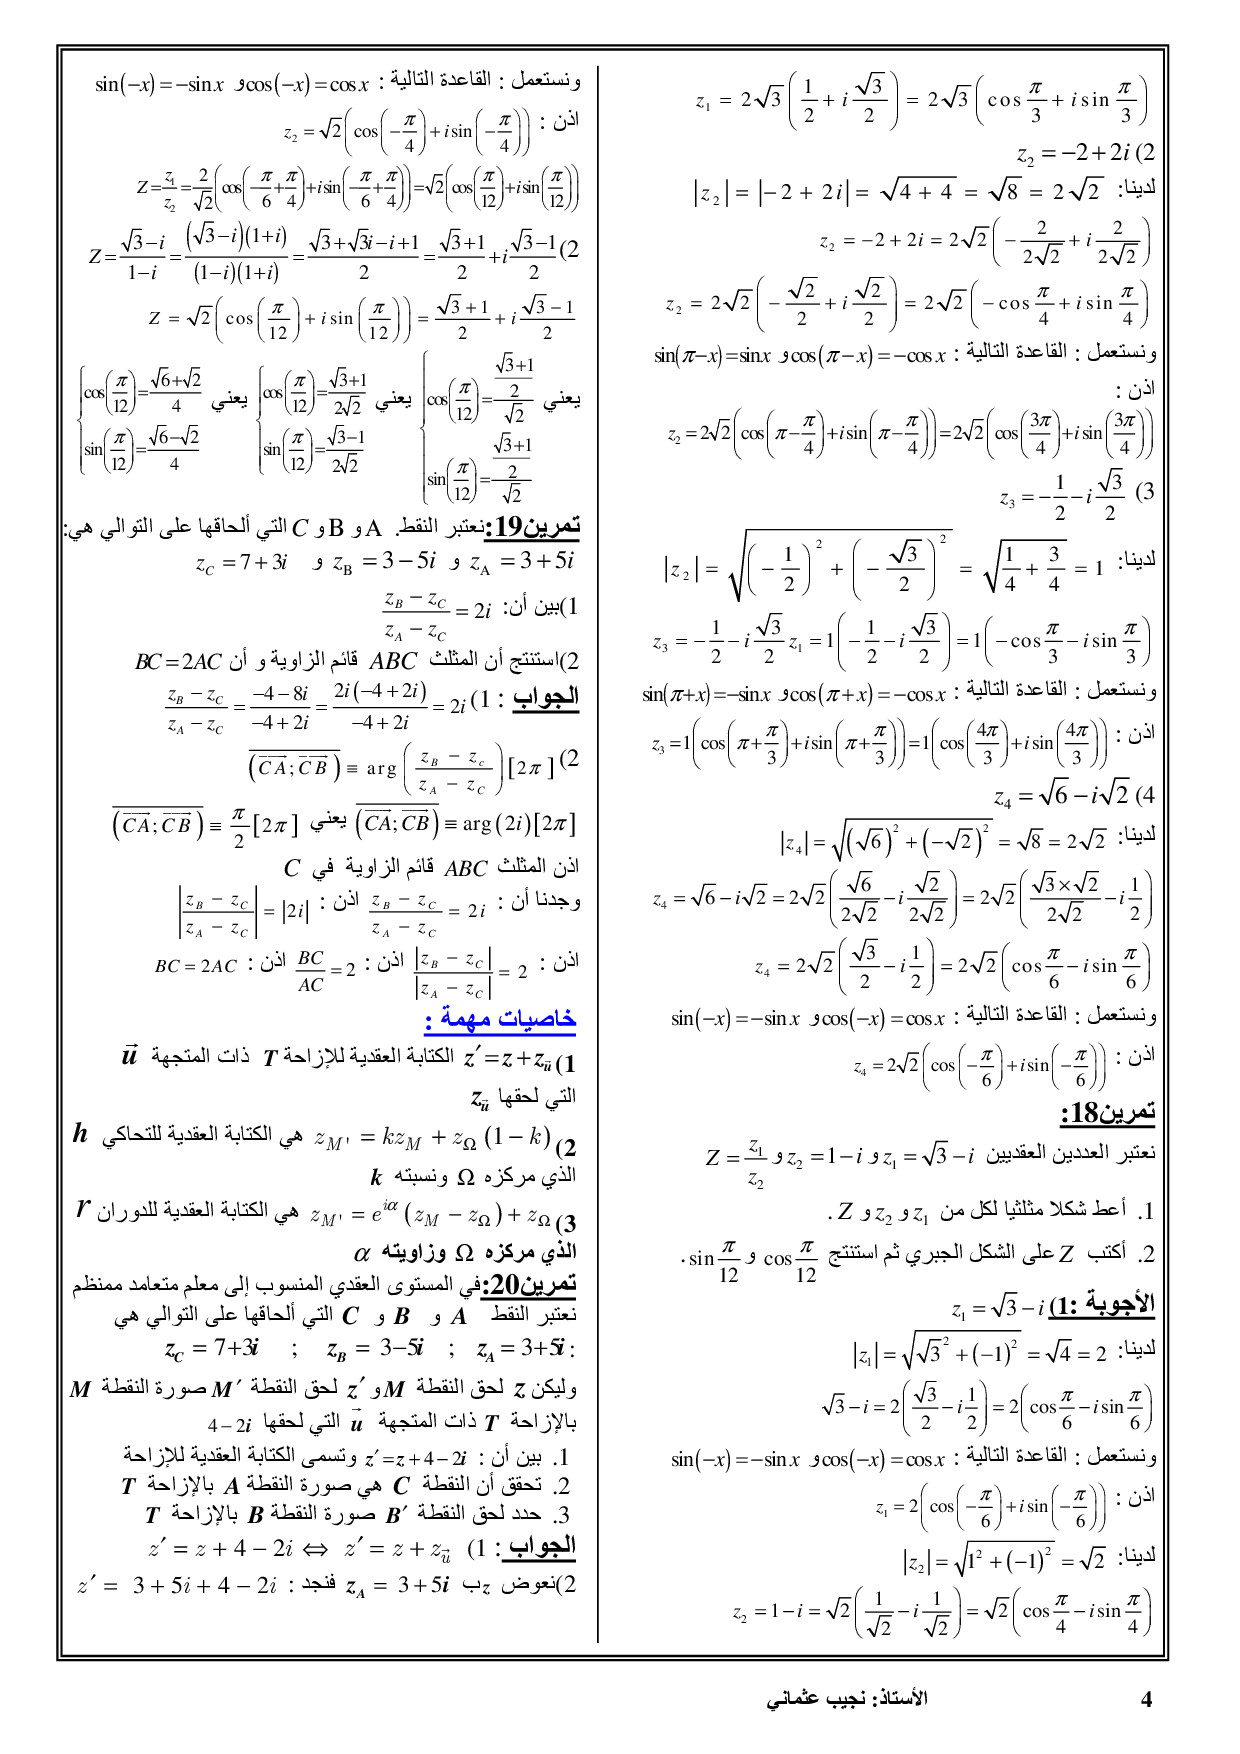 z₁ = 2√3 (1/2 + i √3/2) = 2√3 (cos π/3 + i sin π/3)
z₂ = −2 + 2i (2
لدينا: |z₂| = |−2 + 2i| = √(4 + 4) = √8 = 2√2
z₂ = −2 + 2i = 2√2 (−2/(2√2) + i 2/(2√2))
z₂ = 2√2 (−√2/2 + i √2/2) = 2√2 (−cos π/4 + i sin π/4)
ونستعمل : القاعدة التالية : cos(π − x) = −cos x و sin(π − x) = sin x
اذن :
z₂ = 2√2 (cos(π − π/4) + i sin(π − π/4)) = 2√2 (cos(3π/4) + i sin(3π/4))
z₃ = −1/2 − i √3/2 (3
لدينا: |z₂| = √((−1/2)² + (−√3/2)²) = √(1/4 + 3/4) = 1
z₃ = −1/2 − i √3/2 z₁ = 1(−1/2 − i √3/2) = 1(−cos π/3 − i sin π/3)
ونستعمل : القاعدة التالية : cos(π + x) = −cos x و sin(π + x) = −sin x
اذن : z₃ = 1(cos(π + π/3) + i sin(π + π/3)) = 1(cos(4π/3) + i sin(4π/3))
z₄ = √6 − i√2 (4
لدينا: |z₄| = √((√6)² + (−√2)²) = √8 = 2√2
z₄ = √6 − i√2 = 2√2 (√6/(2√2) − i √2/(2√2)) = 2√2 ((√3×√2)/(2√2) − i 1/2)
z₄ = 2√2 (√3/2 − i 1/2) = 2√2 (cos π/6 − i sin π/6)
ونستعمل : القاعدة التالية : cos(−x) = cos x و sin(−x) = −sin x
اذن : z₄ = 2√2 (cos(−π/6) + i sin(−π/6))
تمرين18:
نعتبر العددين العقديين z₁ = √3 − i و z₂ = 1 − i و Z = z₁/z₂
1. أعط شكلا مثلثيا لكل من z₁ و z₂ و Z .
2. أكتب Z على الشكل الجبري ثم استنتج cos π/12 و sin π/12 .
الأجوبة :1) z₁ = √3 − i
لدينا: |z₁| = √(√3² + (−1)²) = √4 = 2
√3 − i = 2(√3/2 − i 1/2) = 2(cos π/6 − i sin π/6)
ونستعمل : القاعدة التالية : cos(−x) = cos x و sin(−x) = −sin x
اذن : z₁ = 2(cos(−π/6) + i sin(−π/6))
لدينا: |z₂| = √(1² + (−1)²) = √2
z₂ = 1 − i = √2 (1/√2 − i 1/√2) = √2 (cos π/4 − i sin π/4)
ونستعمل : القاعدة التالية : cos(−x) = cos x و sin(−x) = −sin x
اذن : z₂ = √2 (cos(−π/4) + i sin(−π/4))
Z = z₁/z₂ = 2/√2 (cos(−π/6 + π/4) + i sin(−π/6 + π/4)) = √2 (cos(π/12) + i sin(π/12))
Z = (√3 − i)/(1 − i) = ((√3 − i)(1 + i))/((1 − i)(1 + i)) = (√3 + √3i − i + 1)/2 = (√3 + 1)/2 + i (√3 − 1)/2 (2
Z = √2 (cos(π/12) + i sin(π/12)) = (√3 + 1)/2 + i (√3 − 1)/2
يعني { cos(π/12) = ((√3+1)/2)/√2 ; sin(π/12) = ((√3+1)/2)/√2 يعني { cos(π/12) = (√3+1)/(2√2) ; sin(π/12) = (√3−1)/(2√2) يعني { cos(π/12) = (√6+√2)/4 ; sin(π/12) = (√6−√2)/4
تمرين19:نعتبر النقط. A و B و C التي ألحاقها على التوالي هي:
z_A = 3 + 5i و z_B = 3 − 5i و z_C = 7 + 3i
1)بين أن: (z_B − z_C)/(z_A − z_C) = 2i
2)استنتج أن المثلث ABC قائم الزاوية و أن BC = 2AC
الجواب : 1) (z_B − z_C)/(z_A − z_C) = (−4 − 8i)/(−4 + 2i) = (2i(−4 + 2i))/(−4 + 2i) = 2i
2) (CA⃗ ; CB⃗) ≡ arg((z_B − z_c)/(z_A − z_C)) [2π]
(CA⃗ ; CB⃗) ≡ arg(2i)[2π] يعني (CA⃗ ; CB⃗) ≡ π/2 [2π]
اذن المثلث ABC قائم الزاوية في C
وجدنا أن : (z_B − z_C)/(z_A − z_C) = 2i اذن : |(z_B − z_C)/(z_A − z_C)| = |2i|
اذن : |z_B − z_C|/|z_A − z_C| = 2 اذن : BC/AC = 2 اذن : BC = 2AC
خاصيات مهمة :
1) z′ = z + z_u⃗ الكتابة العقدية للإزاحة T ذات المتجهة u⃗
التي لحقها z_u⃗
2) z_M' = kz_M + z_Ω (1 − k) هي الكتابة العقدية للتحاكي h
الذي مركزه Ω ونسبته k
3) z_M' = e^(iα) (z_M − z_Ω) + z_Ω هي الكتابة العقدية للدوران r
الذي مركزه Ω وزاويته α
تمرين20:في المستوى العقدي المنسوب إلى معلم متعامد ممنظم
نعتبر النقط A و B و C التي ألحاقها على التوالي هي
: z_A = 3+5i ; z_B = 3−5i ; z_C = 7+3i
وليكن z لحق النقطة M و z′ لحق النقطة M′ صورة النقطة M
بالإزاحة T ذات المتجهة u⃗ التي لحقها 4 − 2i
1. بين أن : z′ = z + 4 − 2i وتسمى الكتابة العقدية للإزاحة
2. تحقق أن النقطة C هي صورة النقطة A بالإزاحة T
3. حدد لحق النقطة B′ صورة النقطة B بالإزاحة T
الجواب : 1) z′ = z + z_u⃗ ⇔ z′ = z + 4 − 2i
2)نعوض z ب z_A = 3 + 5i فنجد : z′ = 3 + 5i + 4 − 2i
الأستاذ: نجيب عثماني
4